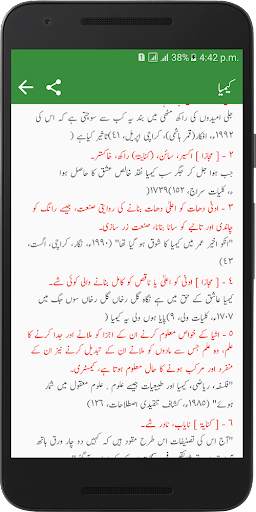 38% 4:42 p.m.
کیمیا
جلی امیدوں کی راکھ مٹھی میں بند یہ کب سے سوچتی ہے کہ اس کی
۱۹۹۲ء، افکار (قمر ہاشمی)، کراچی اپریل، ۴۱) تاثیر کیمیا ہے
۲ - [ مجازا ] اکسیر، سائن، (کنایۃ) راکھ، خاکستر۔
جب ہوا جل کر یہ جسم کیمیا نقد خالص عشق کا حاصل ہوا
۱۷۳۹ء، کلیات سراج، ۱۵۲)
۳ - ادنی دھات کو اعلیٰ دھات بنانے کی روایتی صنعت، جیسے رانگ کو
چاندی اور تانبے کو سانا بنانا، صنعت زر سازی۔
"انکو اخیر عمر میں کیمیا کا شوق ہو گیا تھا" (۱۹۹۰ء، نگار، کراچی، اگست،
۴۳)
۴ - [ مجازا ] ادنی کو اعلیٰ یا ناقص کو کامل بنانے والی کوئی شے۔
کیمیا عاشق کے حق میں ہے نگاہ گل رخاں گل رخاں سوں جگ میں
۱۷۰۷ء، کلیات ولی، پایا ہوں ولی یہ کیمیا
۵ - اشیا کے خواص معلوم کرنے ان کے اجزا کو ملانے اور جدا کرنے کا
علم، وہ علم جس سے مادوں کو ملانے اور ان کے تبدیل کرنے نیز ان کے
مفرد اور مرکب ہونے کا حال معلوم ہوتا ہے، کیمسٹری۔
"فلسفہ، ریاضی، کیمیا اور طبیعیات جیسے علوم . علوم معقول میں شمار
ہوئے" (۱۹۸۵ء، کشاف تنقیدی اصطلاحات، ۱۲۶)
۶ - [ کنایۃ ] نایاب، نادر شے۔
"آج اس کی تصنیفات اس طرح مفقود ہیں کہ کہیں دو چار ورق ہاتھ